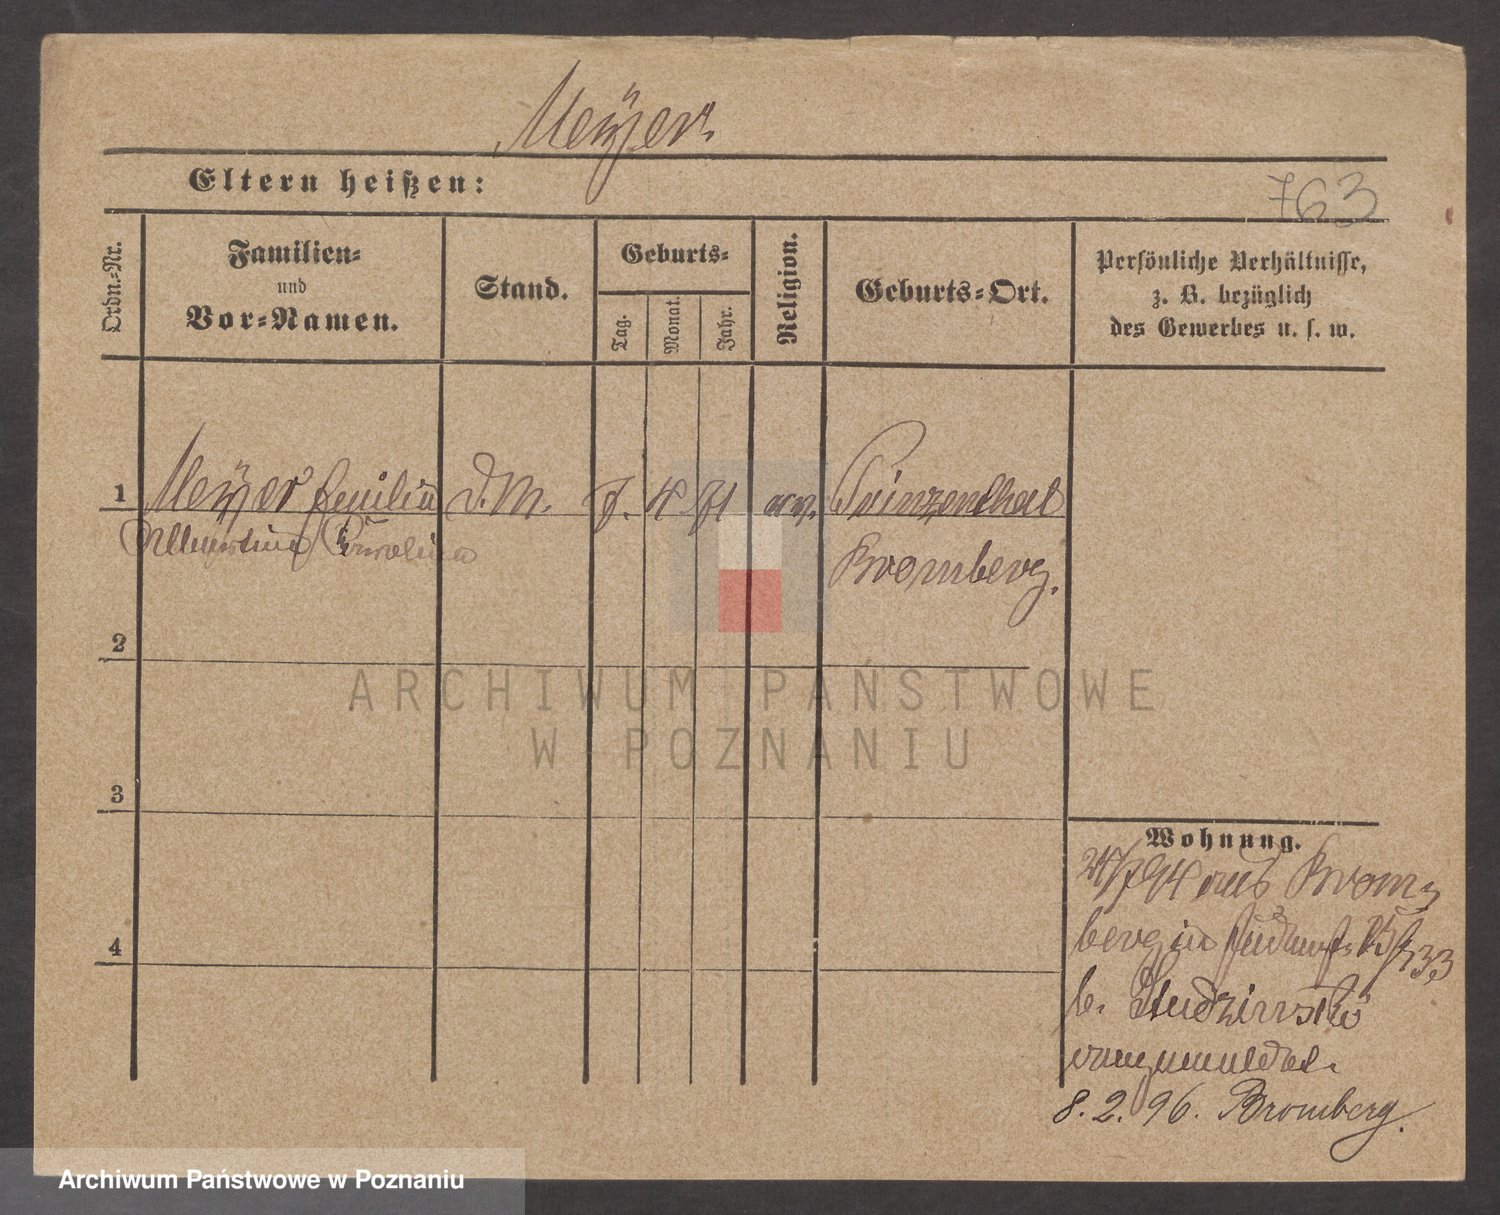 Meÿer
Eltern heißen:
763
Ordn.-Nr.
Familien-
und
Vor-Namen.
Stand.
Geburts-
Tag.
Monat.
Jahr.
Religion.
Geburts-Ort.
Persönliche Verhältnisse,
z. B. bezüglich
des Gewerbes u. s. w.
1
Meÿer Emilie D.M. 7. 4. 71 ev. Prinzenthal
Albertine Caroline
Bromberg.
2
ARCHIWUM PAŃSTWOWE
W POZNANIU
3
Wohnung.
24/7 94 aus Brom-
berg in 33
4
b. Studzinski
angemeldet.
8. 2. 96. Bromberg.
Archiwum Państwowe w Poznaniu